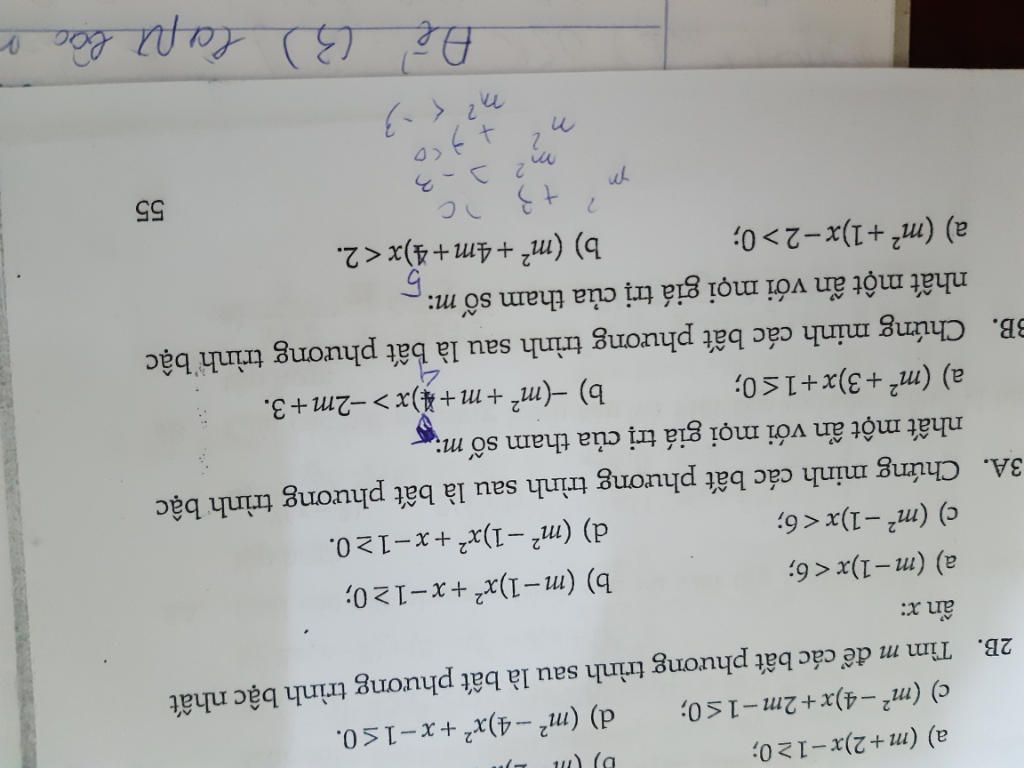 a) (m+2)x−1≥0;
c) (m²−4)x+2m−1≤0; d) (m²−4)x²+x−1≤0.
2B. Tìm m để các bất phương trình sau là bất phương trình bậc nhất
ẩn x:
a) (m−1)x<6; b) (m−1)x²+x−1≥0;
c) (m²−1)x<6; d) (m²−1)x²+x−1≥0.
3A. Chứng minh các bất phương trình sau là bất phương trình bậc
nhất một ẩn với mọi giá trị của tham số m:
a) (m²+3)x+1≤0; b) −(m²+m+4)x>−2m+3.
3B. Chứng minh các bất phương trình sau là bất phương trình bậc
nhất một ẩn với mọi giá trị của tham số m:
5
a) (m²+1)x−2>0; b) (m²+4m+4)x<2.
55
m² + 3 >
m² > -3
m² + 3 <0
m² < -3
Để (3)